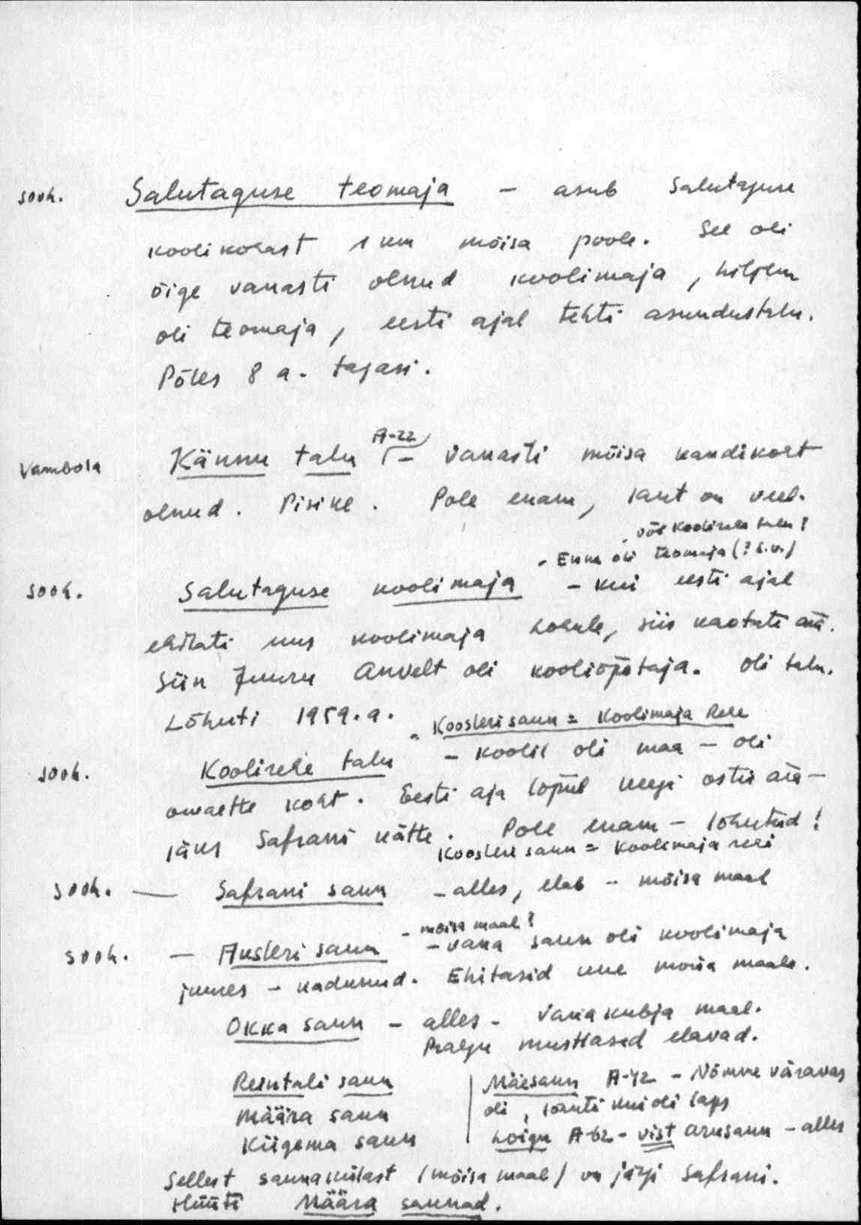 sooh. Salutaguse teomaja - asub Salutaguse
koolikohast 1 km mõisa poole. See oli
õige vanasti olnud koolimaja, hiljem
oli teomaja, eesti ajal tehti asundustalu.
Põles 8 a. tagasi.
Vambola Kännu talu A-22 - vanasti mõisa kandikoht
olnud. Pisike. Pole enam, laut on veel.
või Koolirehe talu?
- Enne oli teomaja (? s.v.)
sooh. Salutaguse koolimaja - kui eesti ajal
ehitati uus koolimaja kohale, siis kaotati ära.
Siin Juuru Anvelt oli kooliõpetaja. Oli talu.
Lõhuti 1959.a.
- Koosleri saun = Koolimaja Rehe
sooh. Koolirehe talu - koolil oli maa - oli
omaette koht. Eesti aja lõpul keegi ostis ära -
läks Safrani kätte. Pole enam - lõhutud!
Koosleri saun = Koolimaja rehi
sooh. - Safrani saun - alles, elab - mõisa maal
- mõisa maal?
sooh. - Austeri saun - vana saun oli koolimaja
juures - kadunud. Ehitasid uue mõisa maale.
Okka saun - alles - Vanakubja maal.
Praegu mustlased elavad.
Reintali saun
Määra saun
Kiigema saun
Mäesaun A-42 - Nõmme väravas
oli, lõhuti kui oli laps
Loigu A-62 - vist arusaun - alles
Sellest saunakülast (mõisa maal) on järgi Safrani.
Hüüti Määra saunad.